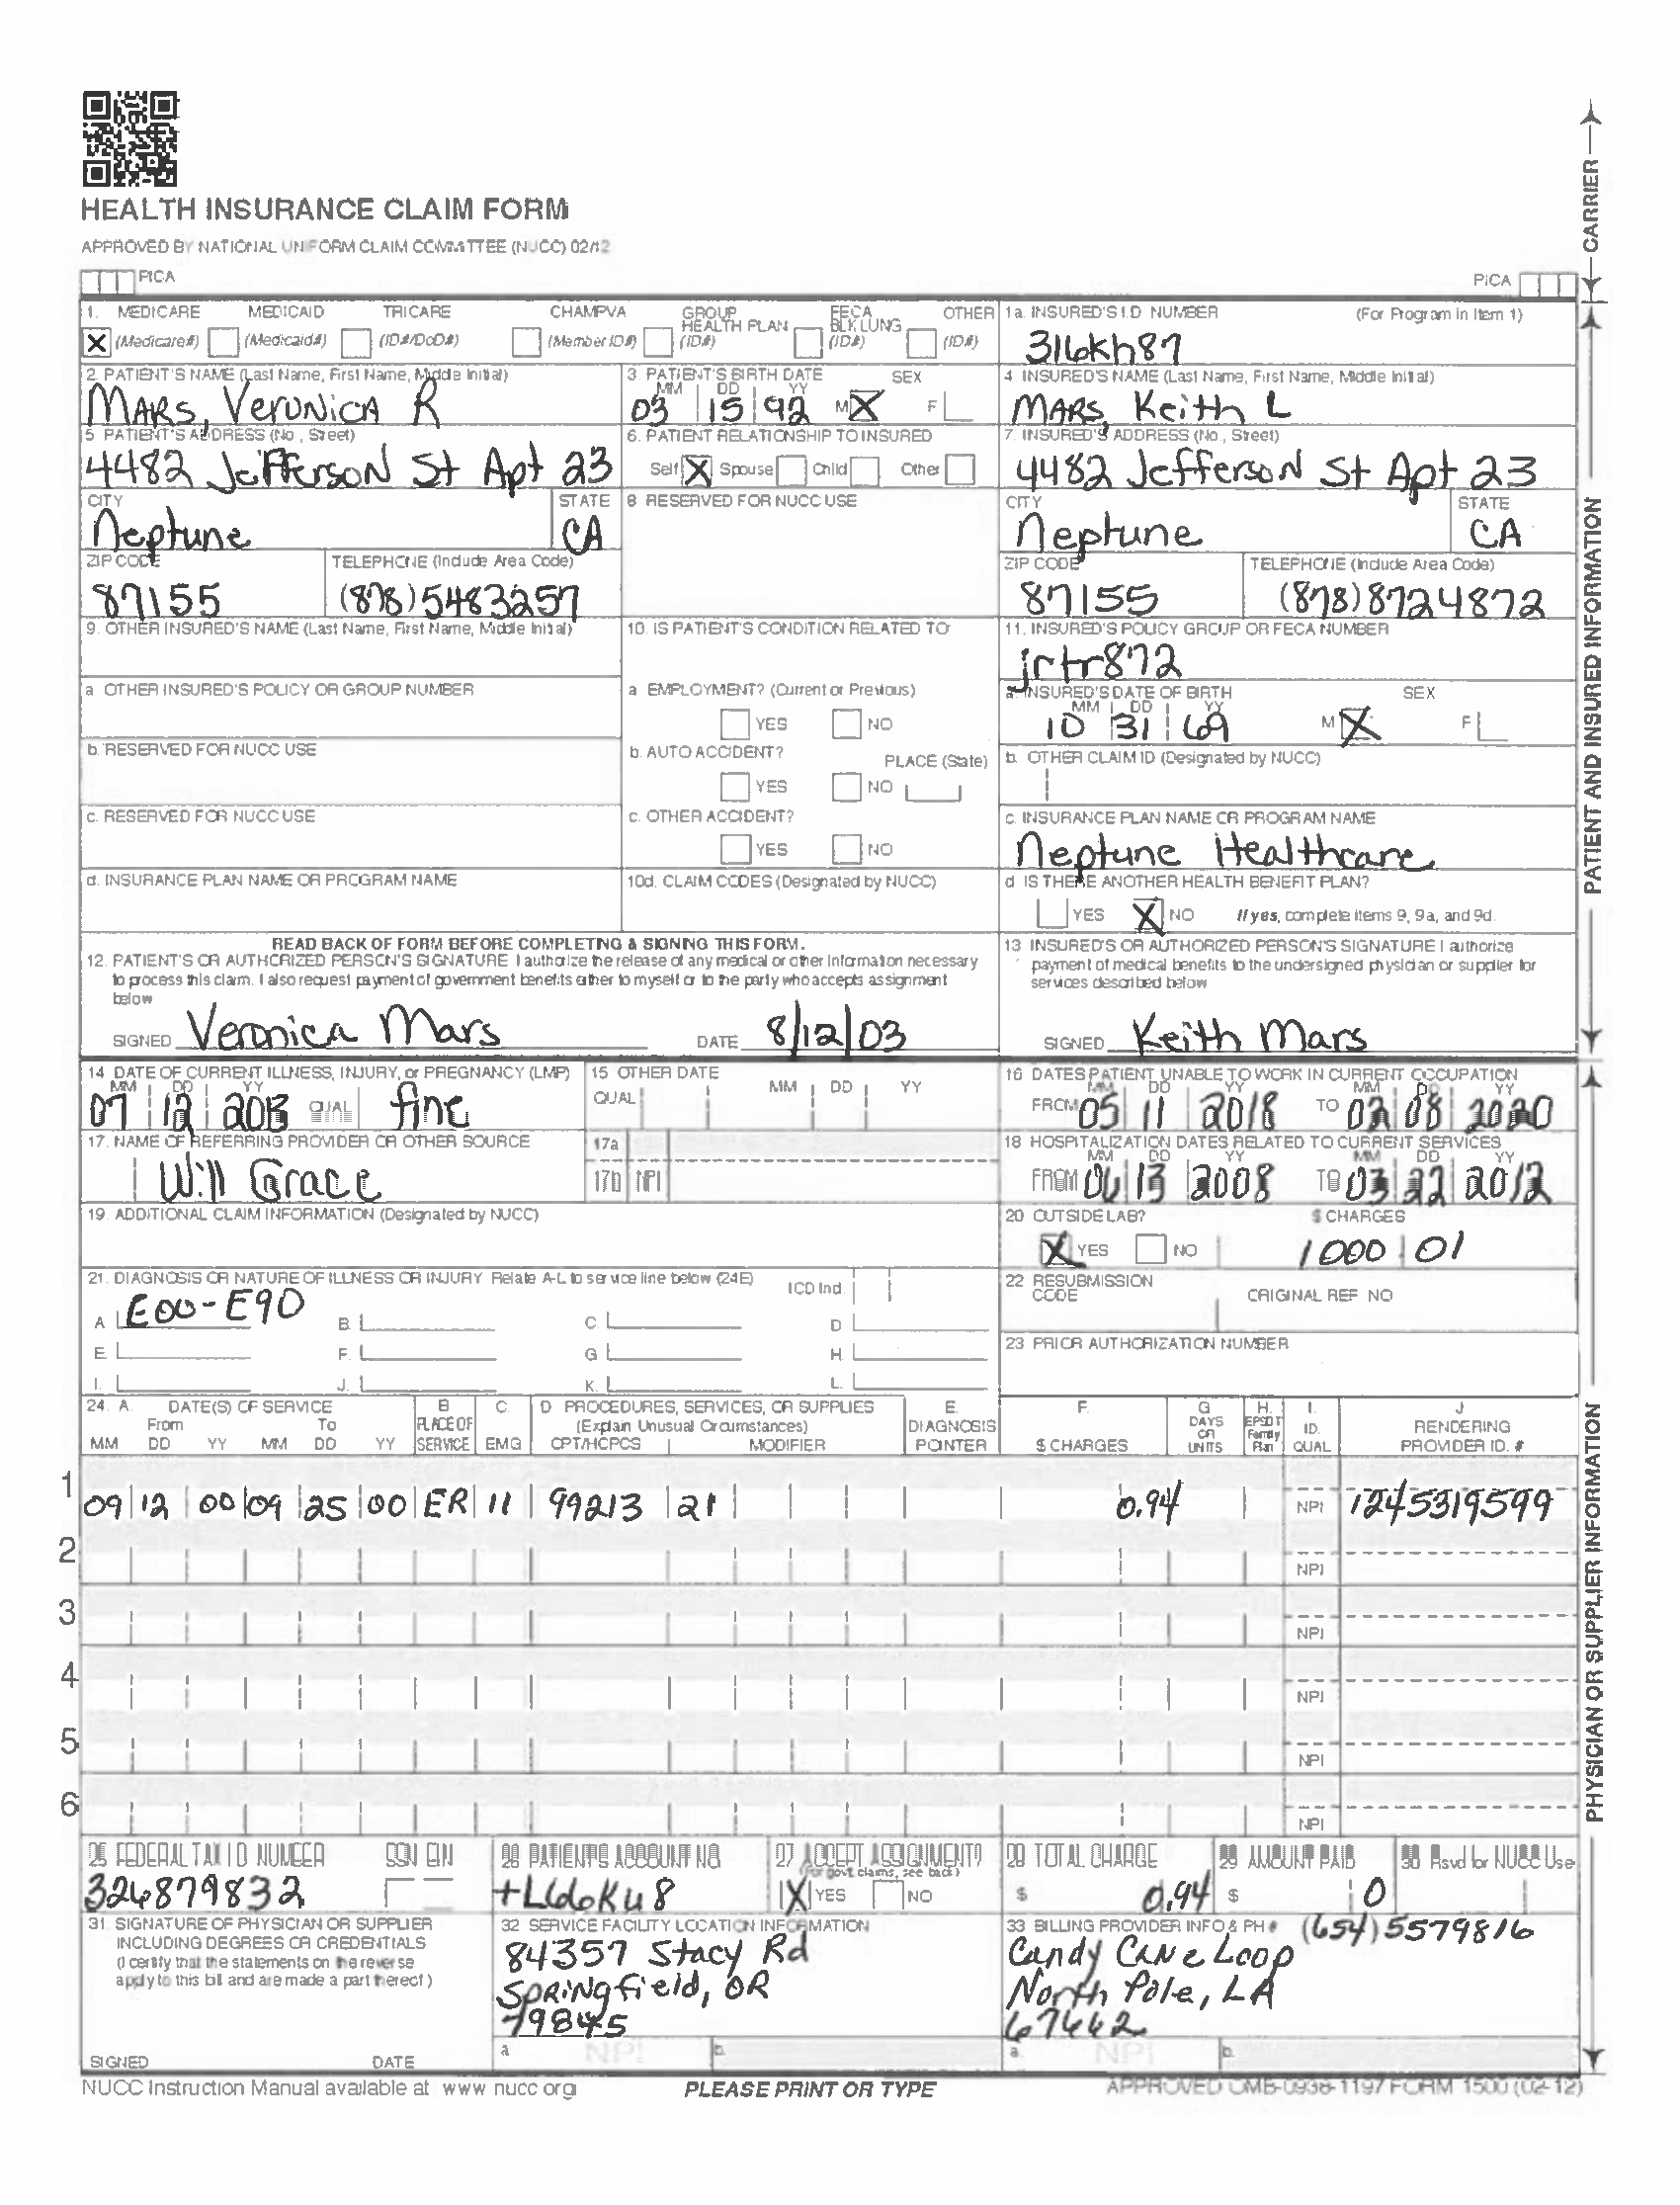 HEALTH INSURANCE CLAIM FORM
APPROVED BY NATIONAL UNIFORM CLAIM COMMITTEE (NUCC) 02/12
PICA
PICA
CARRIER
1. MEDICARE MEDICAID TRICARE CHAMPVA GROUP HEALTH PLAN FECA BLK LUNG OTHER
X (Medicare#) (Medicaid#) (ID#/DoD#) (Member ID#) (ID#) (ID#) (ID#)
1a. INSURED'S I.D. NUMBER (For Program in Item 1)
316kh87
2. PATIENT'S NAME (Last Name, First Name, Middle Initial)
MARS, Veronica R
3. PATIENT'S BIRTH DATE SEX
MM DD YY
03 15 92 M X F
4. INSURED'S NAME (Last Name, First Name, Middle Initial)
MARS, Keith L
5. PATIENT'S ADDRESS (No., Street)
4482 Jefferson St Apt 23
6. PATIENT RELATIONSHIP TO INSURED
Self X Spouse Child Other
7. INSURED'S ADDRESS (No., Street)
4482 Jefferson St Apt 23
CITY STATE
Neptune CA
8. RESERVED FOR NUCC USE
CITY STATE
Neptune CA
ZIP CODE TELEPHONE (Include Area Code)
87155 (878)5483257
ZIP CODE TELEPHONE (Include Area Code)
87155 (878)8724872
9. OTHER INSURED'S NAME (Last Name, First Name, Middle Initial)
10. IS PATIENT'S CONDITION RELATED TO:
11. INSURED'S POLICY GROUP OR FECA NUMBER
jrtr872
a. OTHER INSURED'S POLICY OR GROUP NUMBER
a. EMPLOYMENT? (Current or Previous)
YES NO
a. INSURED'S DATE OF BIRTH SEX
MM DD YY
10 31 69 M X F
b. RESERVED FOR NUCC USE
b. AUTO ACCIDENT? PLACE (State)
YES NO
b. OTHER CLAIM ID (Designated by NUCC)
c. RESERVED FOR NUCC USE
c. OTHER ACCIDENT?
YES NO
c. INSURANCE PLAN NAME OR PROGRAM NAME
Neptune Healthcare
d. INSURANCE PLAN NAME OR PROGRAM NAME
10d. CLAIM CODES (Designated by NUCC)
d. IS THERE ANOTHER HEALTH BENEFIT PLAN?
YES X NO If yes, complete items 9, 9a, and 9d.
PATIENT AND INSURED INFORMATION
READ BACK OF FORM BEFORE COMPLETING & SIGNING THIS FORM.
12. PATIENT'S OR AUTHORIZED PERSON'S SIGNATURE I authorize the release of any medical or other information necessary
to process this claim. I also request payment of government benefits either to myself or to the party who accepts assignment
below
SIGNED Veronica Mars DATE 8/12/03
13. INSURED'S OR AUTHORIZED PERSON'S SIGNATURE I authorize
payment of medical benefits to the undersigned physician or supplier for
services described below
SIGNED Keith Mars
14. DATE OF CURRENT ILLNESS, INJURY, or PREGNANCY (LMP)
MM DD YY
07 12 2013 QUAL fine
15. OTHER DATE
QUAL MM DD YY
16. DATES PATIENT UNABLE TO WORK IN CURRENT OCCUPATION
MM DD YY MM DD YY
FROM 05 11 2018 TO 02 08 2020
17. NAME OF REFERRING PROVIDER OR OTHER SOURCE
Will Grace
17a
17b NPI
18. HOSPITALIZATION DATES RELATED TO CURRENT SERVICES
MM DD YY MM DD YY
FROM 06 13 2008 TO 03 22 2012
19. ADDITIONAL CLAIM INFORMATION (Designated by NUCC)
20. OUTSIDE LAB? $ CHARGES
X YES NO 1000 01
21. DIAGNOSIS OR NATURE OF ILLNESS OR INJURY Relate A-L to service line below (24E) ICD Ind.
A. E00-E90 B. C. D.
E. F. G. H.
I. J. K. L.
22. RESUBMISSION CODE ORIGINAL REF. NO.
23. PRIOR AUTHORIZATION NUMBER
24. A. DATE(S) OF SERVICE B. C. D. PROCEDURES, SERVICES, OR SUPPLIES E. F. G. H. I. J.
From To PLACE OF (Explain Unusual Circumstances) DIAGNOSIS DAYS OR UNITS EPSDT Family Plan ID. RENDERING
MM DD YY MM DD YY SERVICE EMG CPT/HCPCS MODIFIER POINTER $ CHARGES QUAL PROVIDER ID. #
1 09 12 00 09 25 00 ER 11 99213 21 0.94 NPI 1245319599
2 NPI
3 NPI
4 NPI
5 NPI
6 NPI
PHYSICIAN OR SUPPLIER INFORMATION
25. FEDERAL TAX I.D. NUMBER SSN EIN
326879832
26. PATIENT'S ACCOUNT NO.
+L66Ku8
27. ACCEPT ASSIGNMENT?
(For govt. claims, see back)
X YES NO
28. TOTAL CHARGE
$ 0.94
29. AMOUNT PAID
$ 0
30. Rsvd for NUCC Use
31. SIGNATURE OF PHYSICIAN OR SUPPLIER
INCLUDING DEGREES OR CREDENTIALS
(I certify that the statements on the reverse
apply to this bill and are made a part thereof.)
SIGNED DATE
32. SERVICE FACILITY LOCATION INFORMATION
84357 Stacy Rd
Springfield, OR
79845
a. NPI b.
33. BILLING PROVIDER INFO & PH # (654)5579816
Candy Cane Loop
North Pole, LA
67662
a. NPI b.
NUCC Instruction Manual available at: www.nucc.org
PLEASE PRINT OR TYPE
APPROVED OMB-0938-1197 FORM 1500 (02-12)